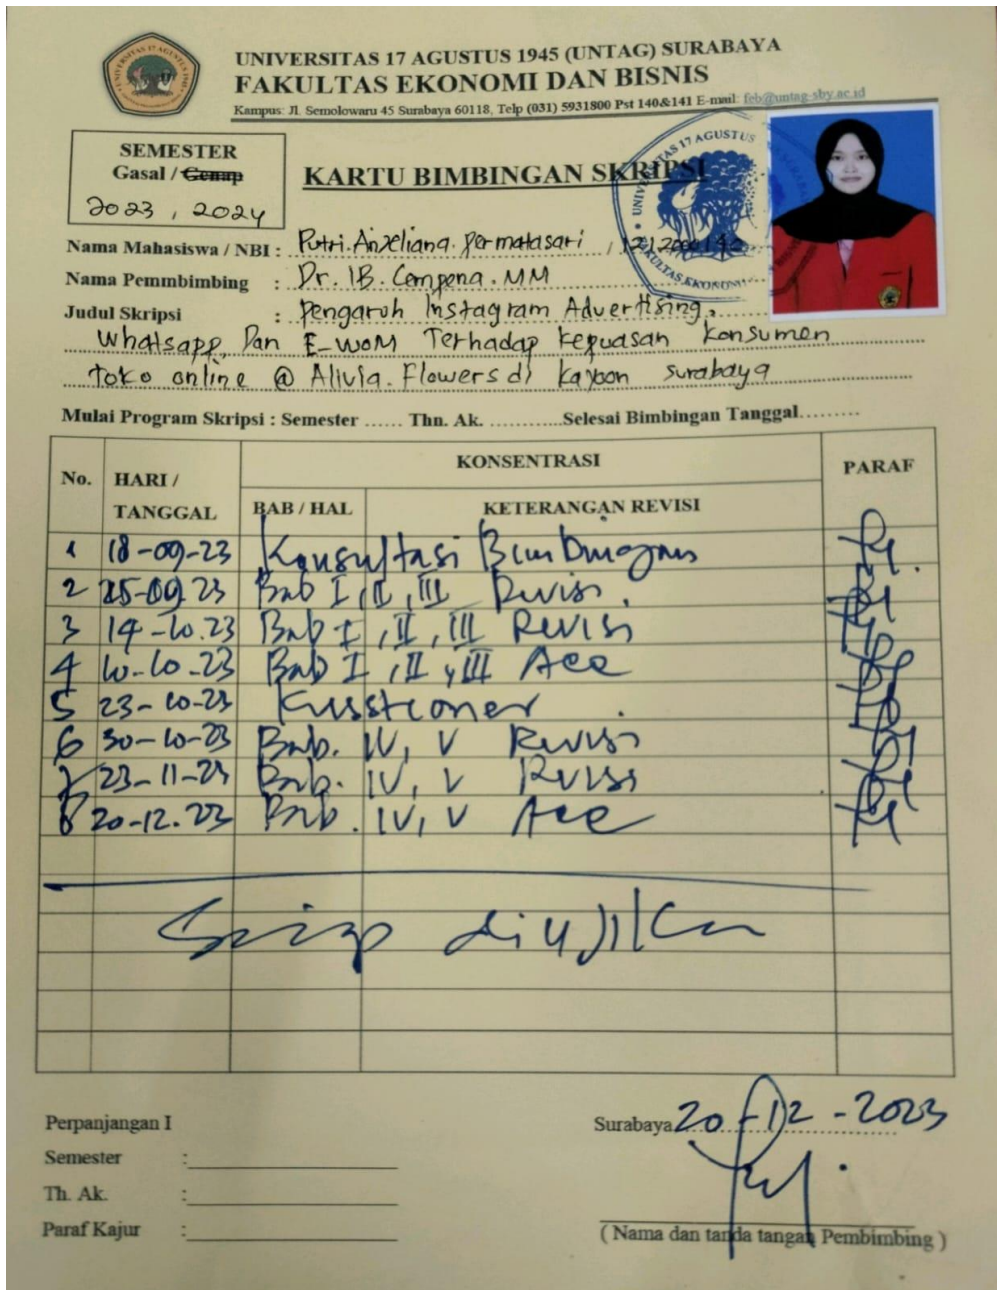 UNIVERSITAS 17 AGUSTUS 1945 (UNTAG) SURABAYA
FAKULTAS EKONOMI DAN BISNIS
Kampus: Jl. Semolowaru 45 Surabaya 60118, Telp (031) 5931800 Pst 140&141 E-mail: feb@untag-sby.ac.id
SEMESTER
Gasal / Genap
2023, 2024
KARTU BIMBINGAN SKRIPSI
Nama Mahasiswa / NBI : Putri Anzeliana Permatasari /
Nama Pemmbimbing : Dr. IB. Cempena. MM
Judul Skripsi : Pengaruh Instagram Advertising,
Whatsapp, Dan E-WOM Terhadap Kepuasan Konsumen
Toko online @ Alivia.Flowers di Kayoon Surabaya
Mulai Program Skripsi : Semester ...... Thn. Ak. ............Selesai Bimbingan Tanggal.........
No. HARI / TANGGAL KONSENTRASI PARAF
BAB / HAL KETERANGAN REVISI
1 18-09-23 Konsultasi Bimbingan
2 25-09-23 Bab I, II, III Revisi.
3 14-10.23 Bab I, II, III Revisi
4 10-10-23 Bab I, II, III Acc
5 23-10-23 Kuesioner.
6 30-10-23 Bab. IV, V Revisi
7 23-11-23 Bab. IV, V Revisi
8 20-12.23 Bab. IV, V Acc
Siap diujikan
Perpanjangan I
Semester :
Th. Ak. :
Paraf Kajur :
Surabaya 20-12-2023
( Nama dan tanda tangan Pembimbing )